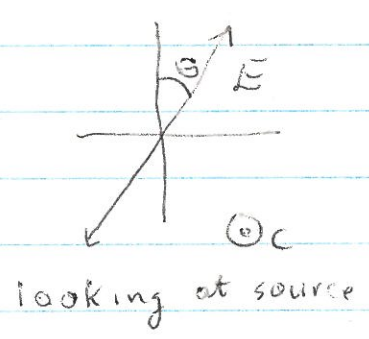 θ
E
C
looking at source